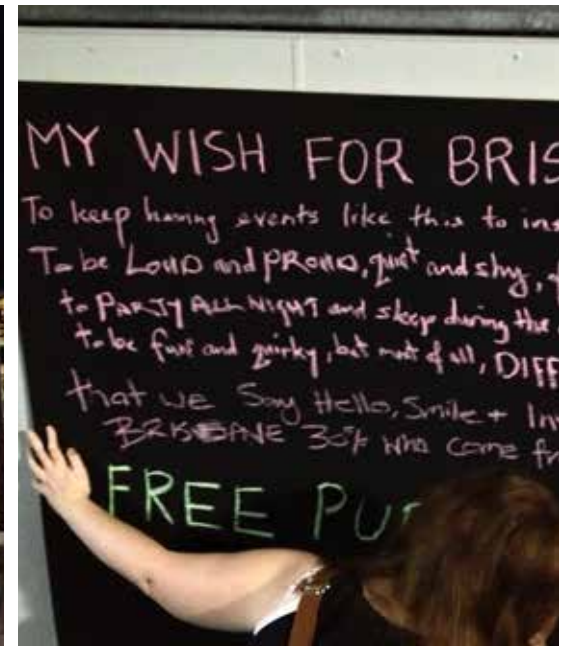 MY WISH FOR BRIS
To keep having events like this to ins
To be LOUD and PROUD, quiet and shy,
to PARTY ALL NIGHT and sleep during the
to be fun and quirky, but most of all, DIFF
that WE Say Hello, Smile + In
BRISBANE 30% who come fr
FREE PU